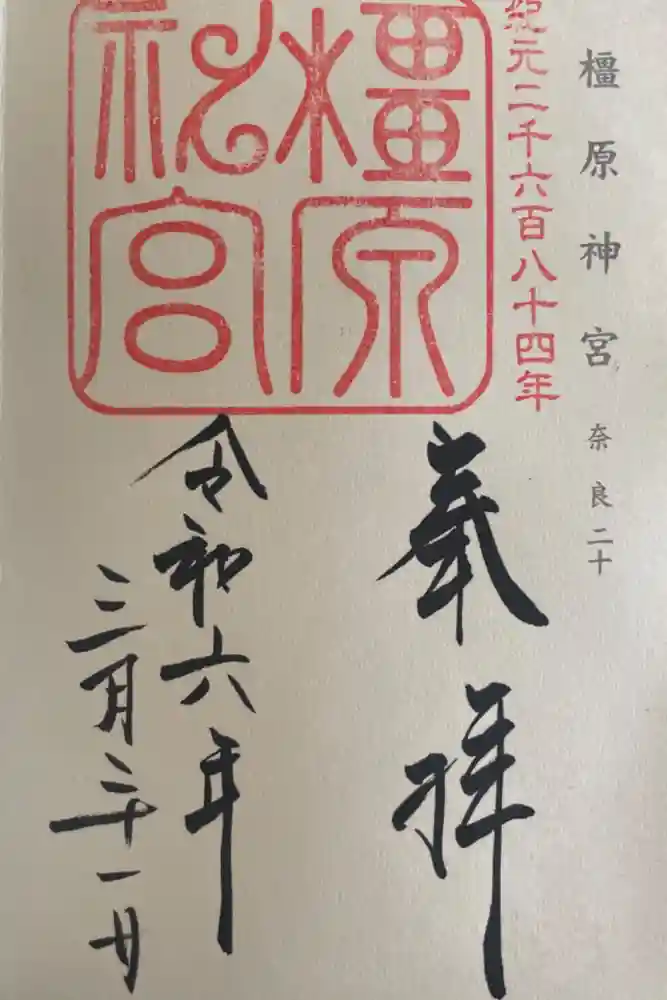 橿原神宮 奈良二十
紀元二千六百八十四年
橿原
神宮
奉拝
令和六年
三月三十一日